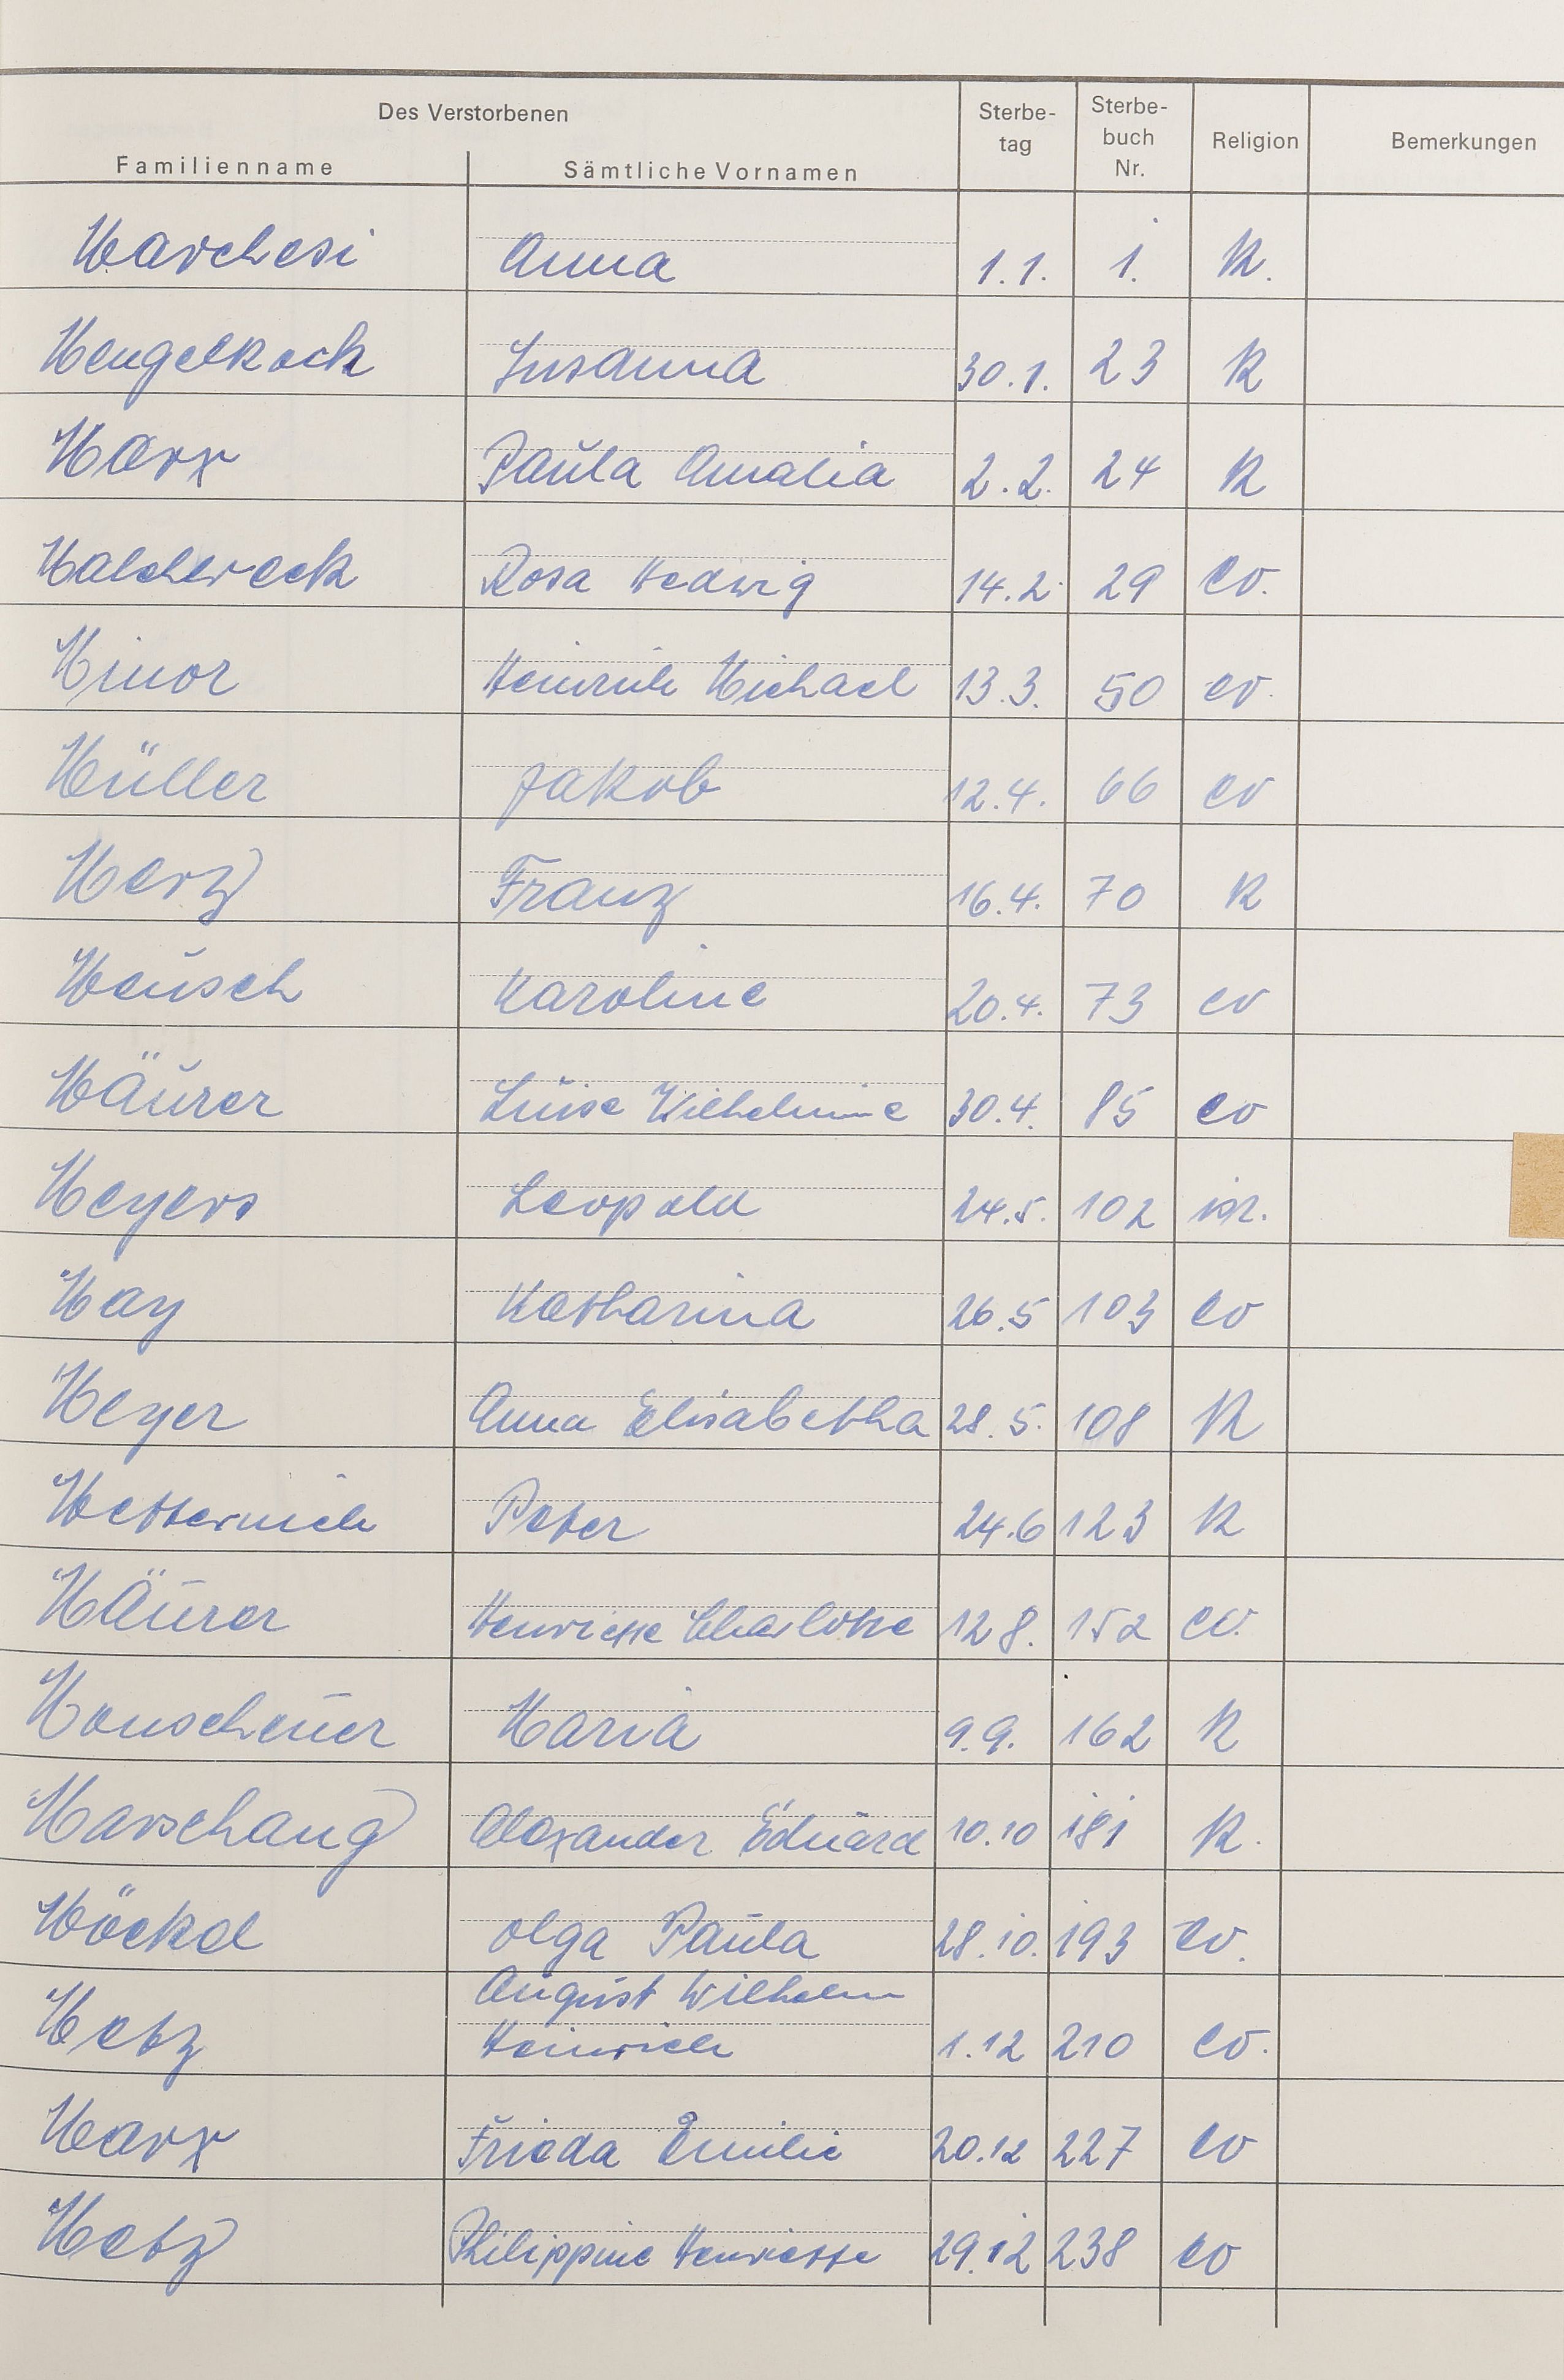 Des Verstorbenen
Familienname Sämtliche Vornamen Sterbe-tag Sterbe-buch Nr. Religion Bemerkungen
Marchesi Anna 1.1. 1. K.
Mengelkoch Susanna 30.1. 23 K
Marx Paula Amalia 2.2. 24 K
Rosa Hedwig 14.2. 29 ev.
Minor Heinrich Michael 13.3. 50 ev.
Müller Jakob 12.4. 66 ev
Merz Franz 16.4. 70 K
Meusch Karoline 20.4. 73 ev
Mäurer Luise Wilhelmine 30.4. 85 ev
Meyers Leopold 24.5. 102 isr.
May Katharina 26.5 103 ev
Meyer Anna Elisabetha 28.5. 108 K
Metternich Peter 24.6 123 K
Mäurer Henriette Charlotte 12 8. 152 ev.
Monscheuer Maria 9.9. 162 K
Marschang Alexander Eduard 10.10 181 K.
Möckel Olga Paula 28.10. 193 ev.
August Wilhelm
Metz Heinrich 1.12 210 ev.
Marx Frieda Emilie 20.12 227 ev
Metz Philippine Henriette 29.12 238 ev